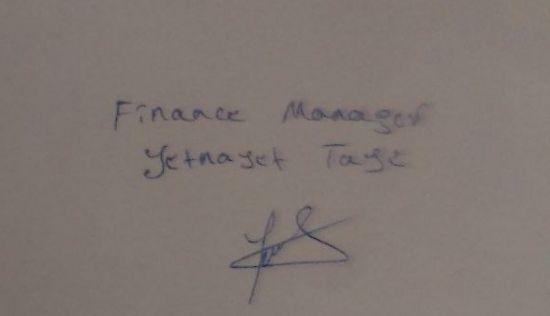 Finance Manager
Yetnayet Taye